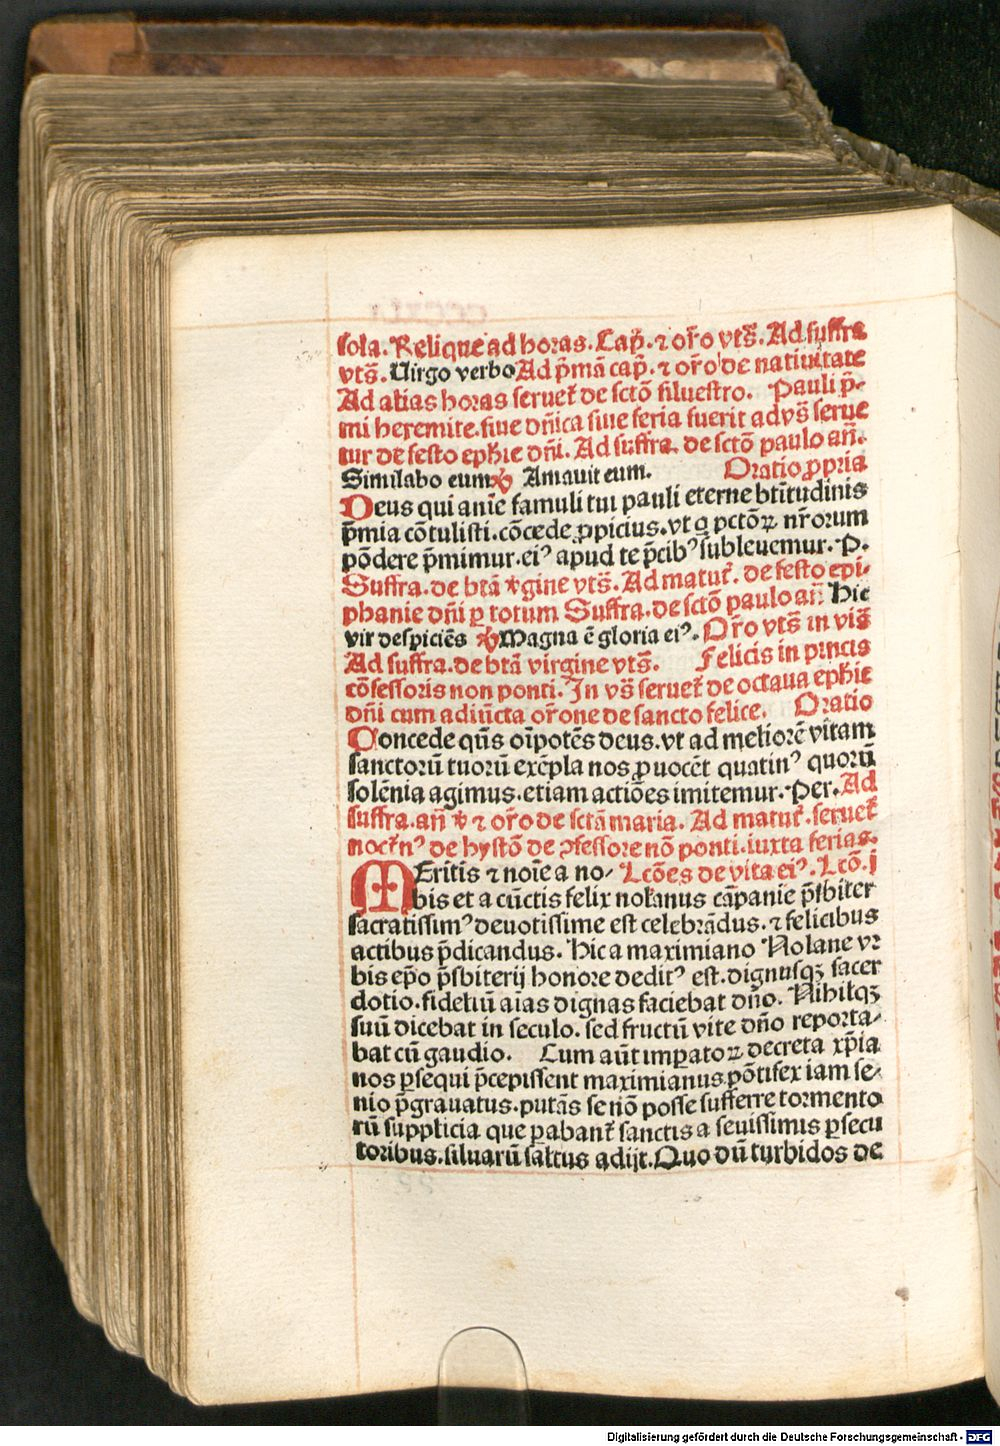 sola. Relique ad horas. Cap̄. ⁊ or̄o vts̄. Ad suffra
vts̄. Uirgo verbo Ad p̄mā cap̄. ⁊ or̄o de natiuitate
Ad alias horas seruet᷑ de sctō siluestro. Pauli p̄-
mi heremite. siue dn̄ica siue feria fuerit ad vs̄ serue
tur de festo ephīe dn̄i. Ad suffra. de sctō paulo an̄.
Similabo eum ℣ Amauit eum. Oratio ꝓpria
Deus qui anīe famuli tui pauli eterne btītudinis
p̄mia cōtulisti. cōcede ꝓpicius. vt q pctōꝝ nr̄orum
pōdere p̄mimur. eiꝰ apud te p̄cibꝰ subleuemur. P.
Suffra. de btā ℣gine vts̄. Ad matut᷑. de festo epi-
phanie dn̄i ꝑ totum Suffra. de sctō paulo an̄ Hic
vir despiciēs ℣ Magna ē gloria eiꝰ. Or̄o vts̄ in vis̄
Ad suffra. de btā virgine vts̄. Felicis in pincis
cōfessoris non ponti. In vs̄ seruet᷑ de octaua ephīe
dn̄i cum adiūcta or̄one de sancto felice. Oratio
Concede qs̄ oīpotēs deus. vt ad meliorē vitam
sanctorū tuorū exēpla nos ꝓuocēt quatinꝰ quorū
solēnia agimus. etiam actiōes imitemur. Per. Ad
suffra. an̄ ℣ ⁊ or̄o de sctā maria. Ad matut᷑. seruet᷑
noct᷑nꝰ de hystō de ꝯfessore nō ponti. iuxta ferias.
MEritis ⁊ noīe a no- Lcōes de vita eiꝰ. Lcō. j
bis et a cūctis felix nolanus cāpanie p̄sbiter
sacratissimꝰ deuotissime est celebrādus. ⁊ felicibus
actibus p̄dicandus. Hic a maximiano Nolane vr
bis ep̄o p̄sbiterij honore deditꝰ est. dignusqꝫ sacer
dotio. fideliū aīas dignas faciebat dn̄o. Nihilqꝫ
suū dicebat in seculo. sed fructū vite dn̄o reporta-
bat cū gaudio. Cum aūt imꝑatoꝝ decreta xp̄ia
nos ꝑsequi p̄cepissent maximianus pōtifex iam se-
nio p̄grauatus. putās se nō posse sufferre tormento
rū supplicia que ꝑabant᷑ sanctis a seuissimis ꝑsecu
toribus. siluarū saltus adijt. Quo dū turbidos de
Digitalisierung gefördert durch die Deutsche Forschungsgemeinschaft - DFG